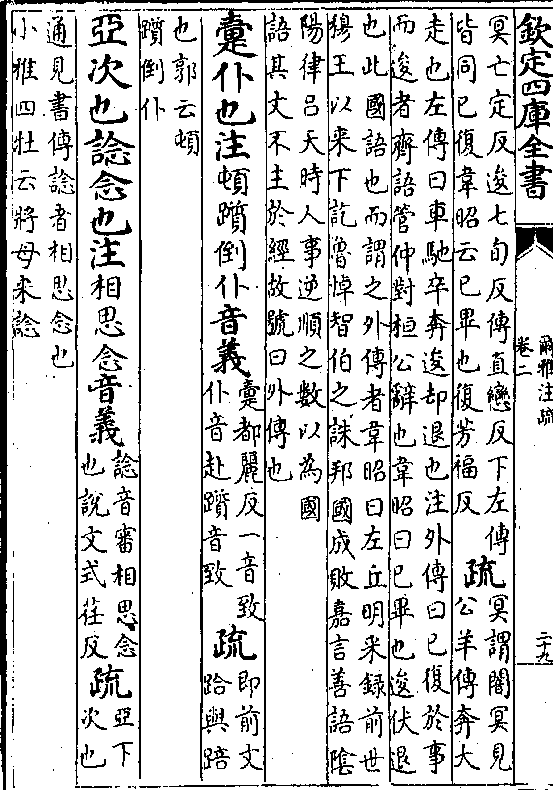 欽定四庫全書
爾雅注疏
卷二
二十九
冥亡定反逡七旬反傳直戀反下左傳
皆同已復韋昭云已畢也復芳福反
疏
冥謂闇冥見
公羊傳奔大
走也左傳曰車馳卒奔逡却退也注外傳曰已復於事
而逡者齊語管仲對桓公辭也韋昭曰已畢也逡伏退
也此國語也而謂之外傳者韋昭曰左丘明采録前世
穆王以来下訖魯悼智伯之誅邦國成敗嘉言善語陰
陽律吕天時人事逆順之數以為國
語其文不主於經故號曰外傳也
疐仆也注頓躓倒仆音義
疐都麗反一音致
仆音赴躓音致
疏
即前文
跲與踣
也郭云頓
躓倒仆
亞次也諗念也注相思念音義
諗音審相思念
也說文式荏反
疏
亞下
次也
通見書傳諗者相思念也
小雅四牡云將母来諗